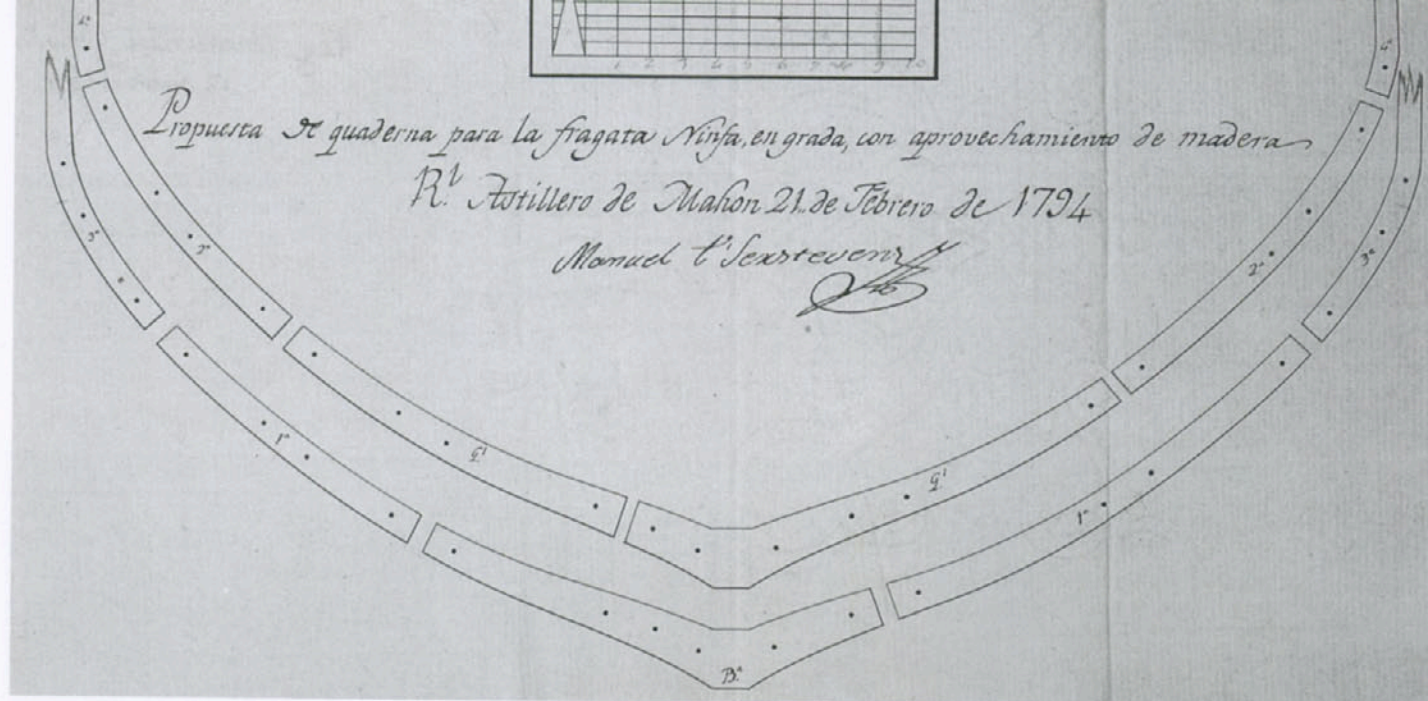 1 2 3 4 5 6 7 8 9 10
4º
4º
Propuesta de quaderna para la fragata Ninfa, en grada, con aprovechamiento de madera
R.l Astillero de Mahon 21 de Febrero de 1794
Manuel
3º
2º
2º
3º
1º
G.l
G.l
1º
B.a